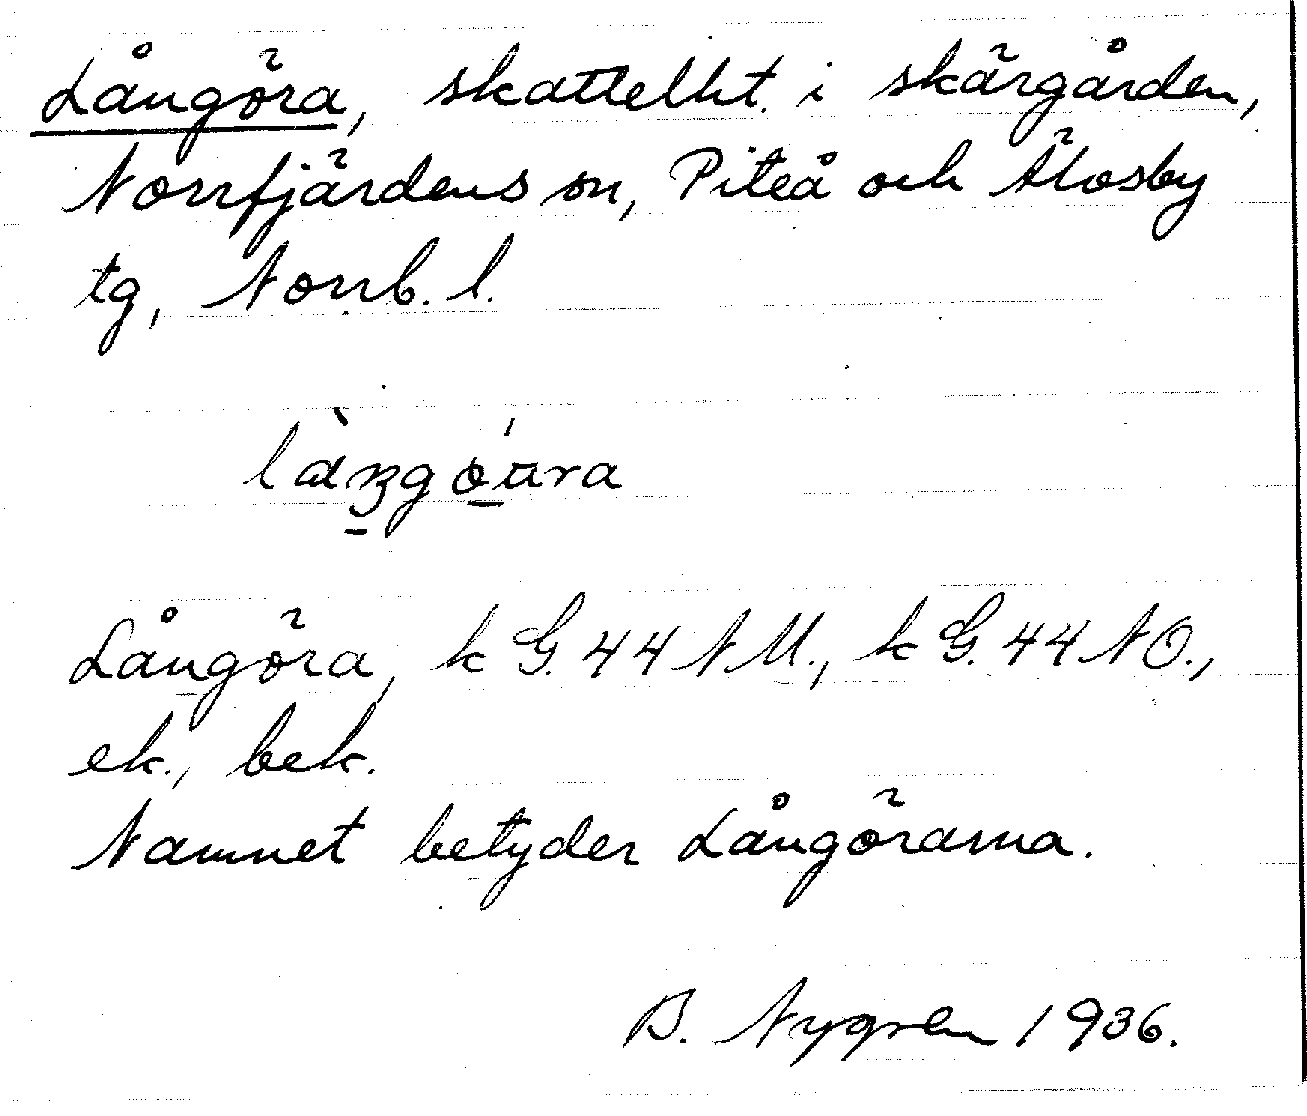 Långöra, skatteht. i skärgården,
Norrfjärdens sn, Piteå och Älvsby
tg, Norrb. l.
Långöra, k G. 44 NV., k G. 44 NO.,
ek., bek.
Namnet betyder Långörarna.
B. Nygren 1936.